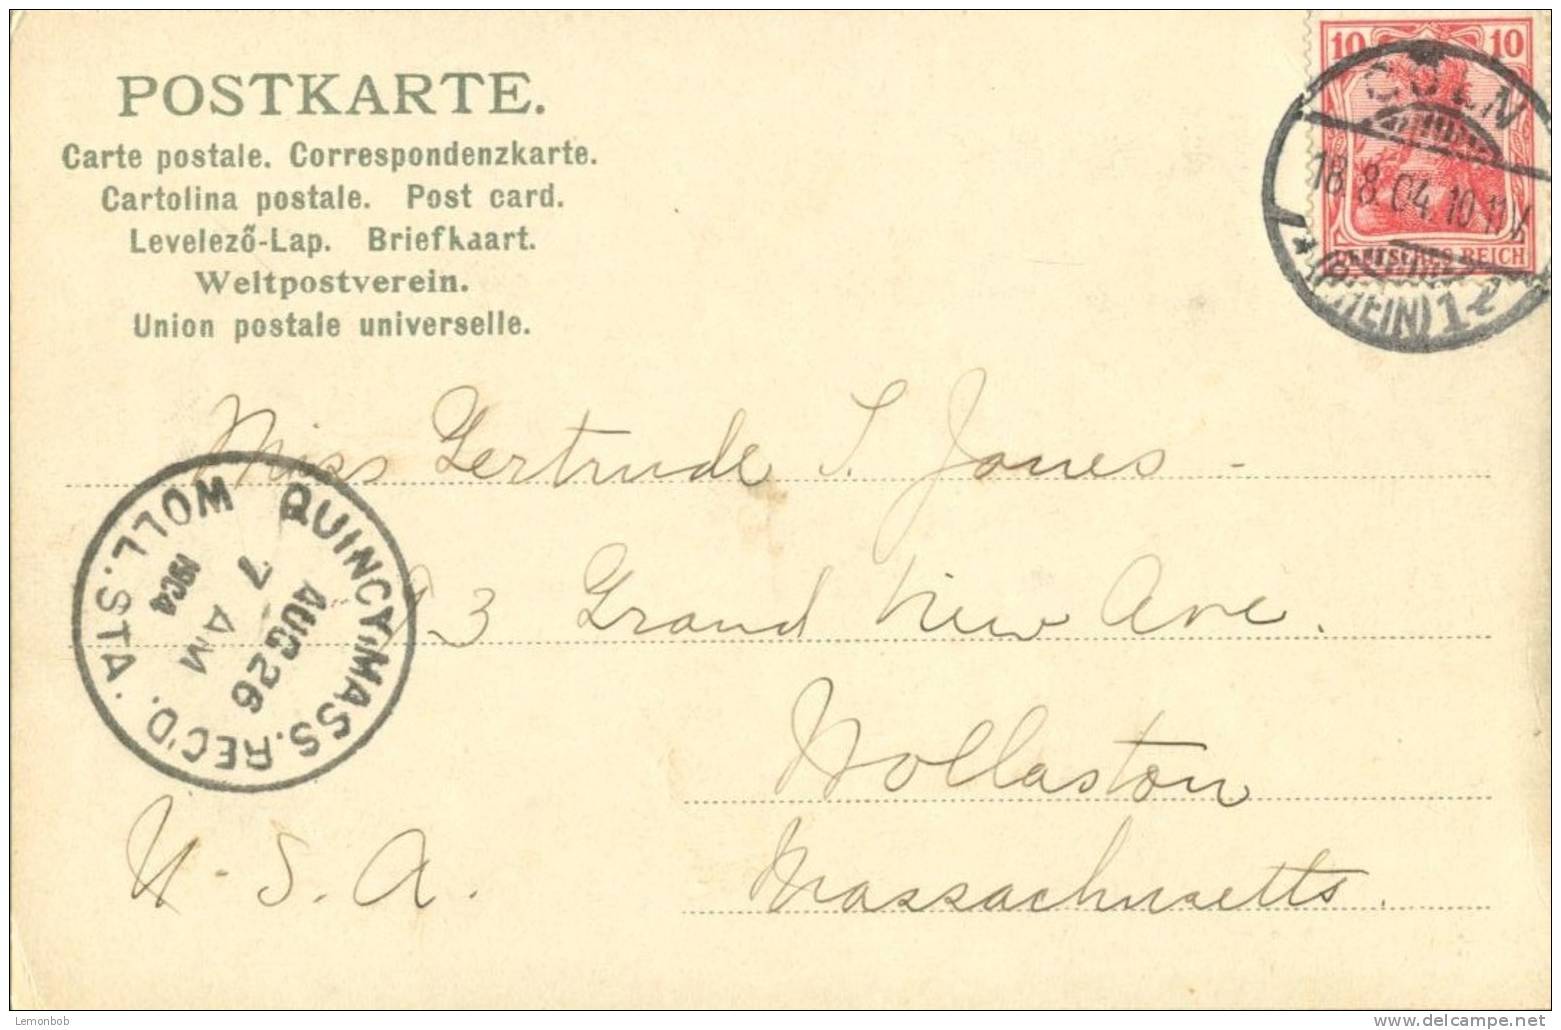 POSTKARTE.
Carte postale. Correspondenzkarte.
Cartolina postale. Post card.
Levelező-Lap. Briefkaart.
Weltpostverein.
Union postale universelle.
10 10
DEUTSCHES REICH
CÖLN
18.8.04.10-11V.
* (RHEIN) 1
Miss Gertrude S. Jones -
93 Grand View Ave.
Wollaston
Massachusetts.
U. S. A.
QUINCY, MASS. REC'D.
WOLL. STA.
AUG 26
7 AM
1904
Lemonbob
www.delcampe.net